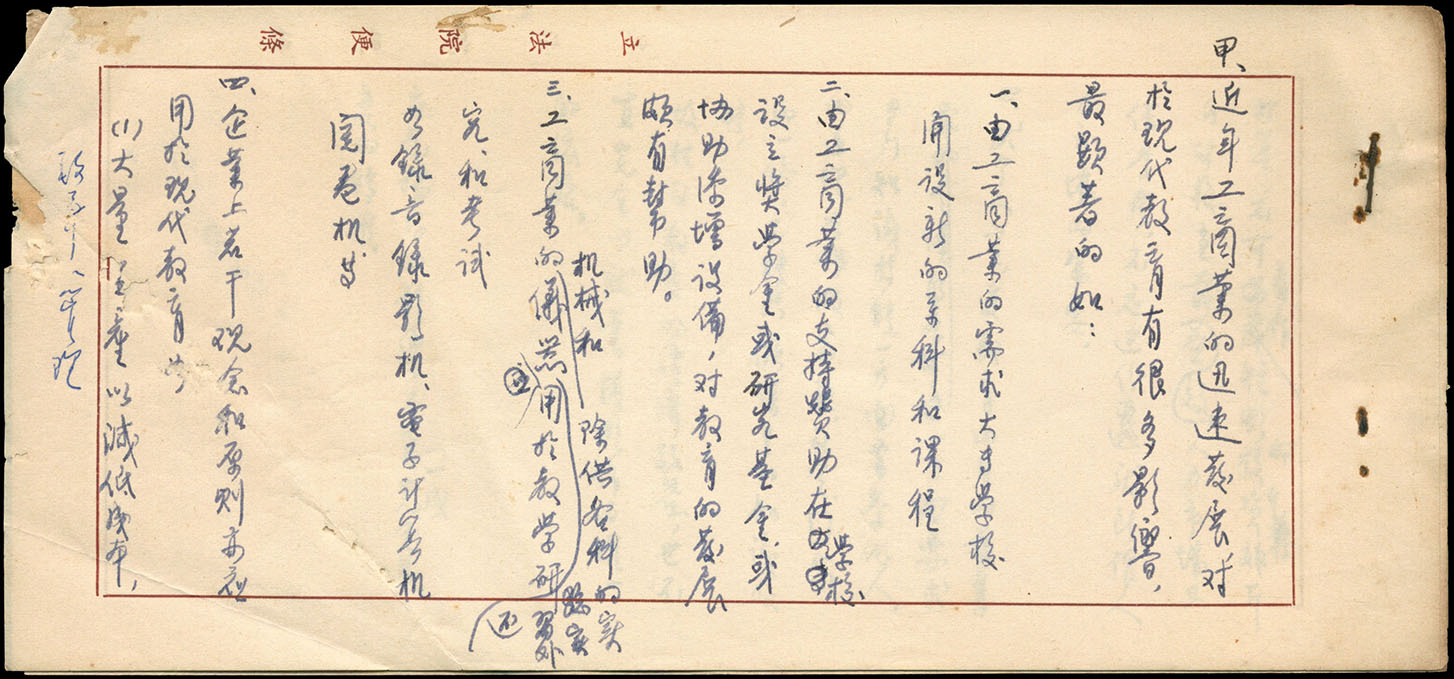 立法院便條
甲、近年工商業的迅速發展对
於现代教育有很多影響,
最顯著的如:
一、由工商業的需求大专学校
開設新的学科和課程
二、由工商業的支持贊助在学校
設立奖学金或研究基金、或
协助添增設備,对教育的發展
頗有幫助。
三、工商業的機械和儀器用於教学研習外
除供各科的实
驗
究、和考试
如錄音錄影机、電子计算机
閱卷机等
四、企業上若干观念和原则亦应
用於现代教育如
(1)大量生產以減低成本,